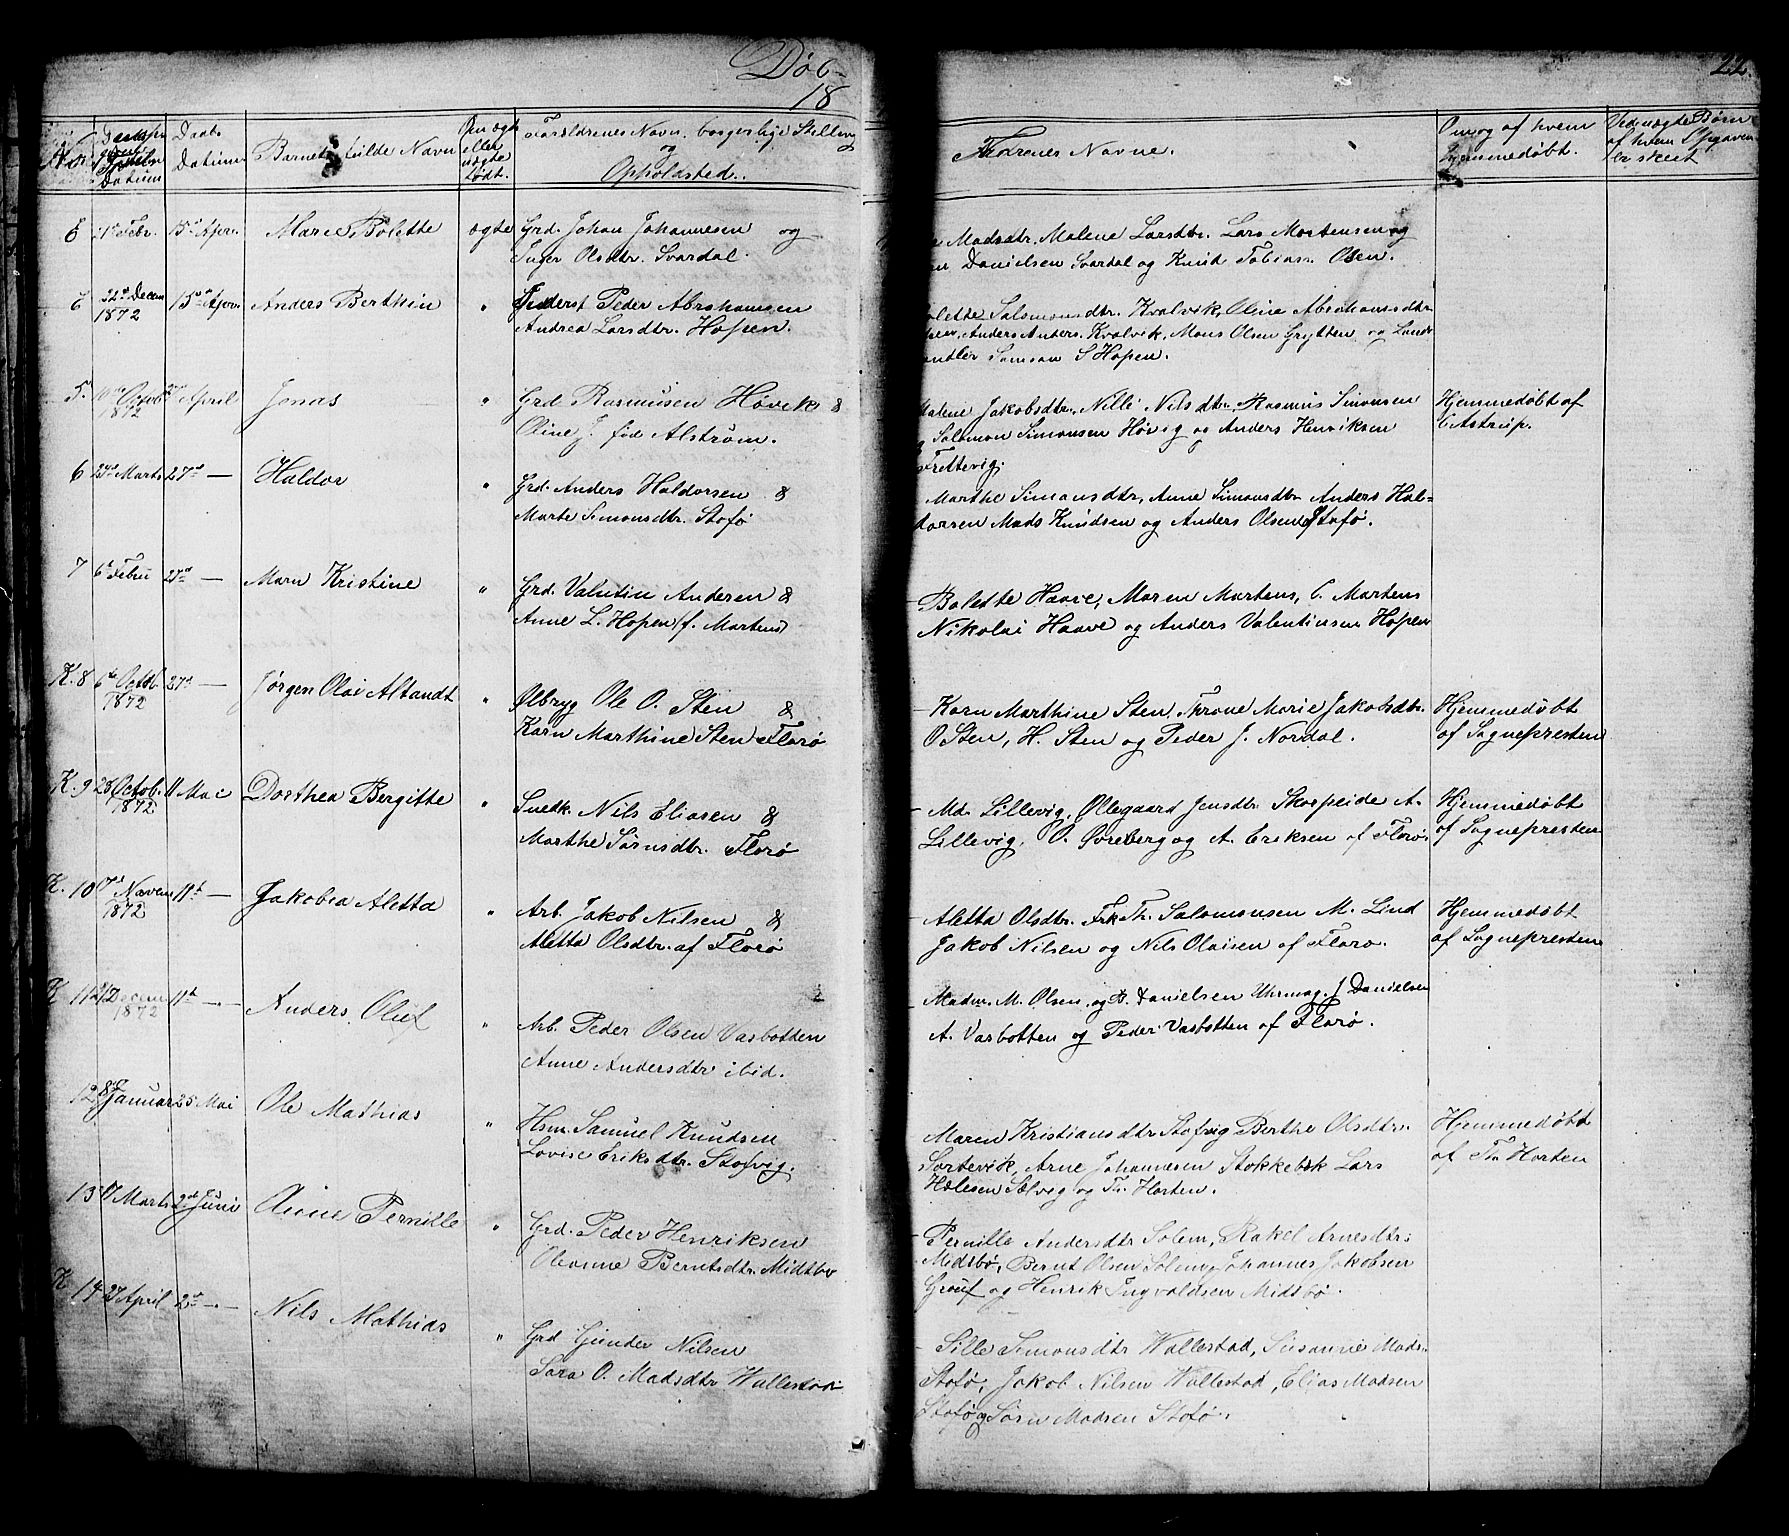 Døb-
18
22.
Nr.
Datum
Daabs
Datum
Barnets fulde Navn
Om ægte
eller
uægte
født.
Forældrenes Navn, borgerlige Stilling
og
Opholdsted.
Fadrenes Navne.
Om og af hvem
hjemmedøbt.
Ved uægte Børn
af hvem Opgaven
er skeet
21de Febr. 15de Apr. Marie Bolette ægte Grd. Johan Johannesen og
Inger Olsdtr. Svardal.
Madsdtr. Malene Larsdtr. Lars Mortensen og
Danielsen Svardal og Knud Tobias Olsen.
22de Decem 15de Apr. Anders Berthin "
1872
Peder Abrahamsen
Andrea Larsdtr. Hopen.
Salomonsdtr. Kvalvik, Oline Abrahamsdtr.
Anders Anders. Kvalvik, Mons Olsen Grytten og Land-
handler Samson S Hopen.
5. Octob April Jonas "
1872
Grd. Rasmusen Høvik &
Oline J. fød Alstrøm.
Malene Jakobsdtr., Nille Nilsdtr., Rasmus Simonsen
og Salomon Simonsen Høvig og Anders Henriksen
Frettevig.
Hjemmedøbt af
C Astrup.
6 Marts 27de — Haldor "
Grd. Anders Haldorsen &
Marte Simonsdtr. Stofø
Marthe Simonsdtr, Anne Simonsdtr Anders Hal-
dorsen Mads Knudsen og Anders Olsen Stofø.
7 6te Febru 27de — Marn Kristine "
Grd. Valintin Andersen &
Anne L. Hopen (f. Martens)
— Boletте Haave, Maren Martens, C. Martens
Nikolai Haave og Anders Valentinsen Hopen
K. 8 6te Octob. 27de — Jørgen Olai Altandt "
1872
Ølbryg Ole O. Sten &
Karn Marthine Sten Florø
— Karn Marthine Sten, Frove Marie Jakobsdtr.
O Sten, H. Sten og Peder J. Nordal.
Hjemmedøbt
af Sognepresten
K. 9 28 Octob. 11 Mai Dorthea Bergitte "
1872
Snedk. Nils Eliasen &
Marthe Sørnsdtr. Florø
— Md. Lillevig, Ollegaard Jensdtr. Skorpeide A.
Lillevig, O. Øvreberg og A. Eriksen af Florø.
Hjemmedøbt
af Sognepresten
K. 10 7de Novem 11te — Jakobea Aletta "
1872
Arb. Jakob Nilsen &
Aletta Olsdtr. af Florø
— Aletta Olsdtr. Frk Th. Salomonsen M. Lind
Jakob Nilsen og Nils Olaisen af Florø.
Hjemmedøbt
af Sognepresten
K. 11 Decem 11te — Anders Oluf "
1872
Arb. Peder Olsen Vasbotten
Anne Andersdtr ibid.
Madm. M. Olsen, og B. Danielsen Uhrmag. J Danielsen
A. Vasbotten og Peder Vasbotten af Florø.
12 8de Januar 25 Mai Ole Mathias "
Hsm. Samuel Knudsen
Lovise Eriksdtr. Stofvig.
Maren Kristiansdtr Stofvig Berthe Olsdtr.
Sortevik, Arne Johannesen Stokkebek Lars
Helesen Sælvig og Th. Horten.
Hjemmedøbt
af Th Horten
13 Marts 2de Juni Anne Pernille "
Grd. Peder Henriksen
Olevine Berntsdtr. Midtbø
— Pernille Andersdtr Solem, Rakel Arnesdtr.
Midsbø, Bernt Olsen Solem, Johannes Jakobsen
Grouf og Henrik Ingvaldsen Midsbø.
K. 14 27 April 2de — Nils Mathias "
Grd Gunder Nilsen
Sara O. Madsdtr Vallestad
— Sille Simonsdtr Vallestad, Susanne Mads-
Stofø, Jakob Nilsen Vallestad, Elias Madsen
Stofø og Sørn Madsen Stofø.